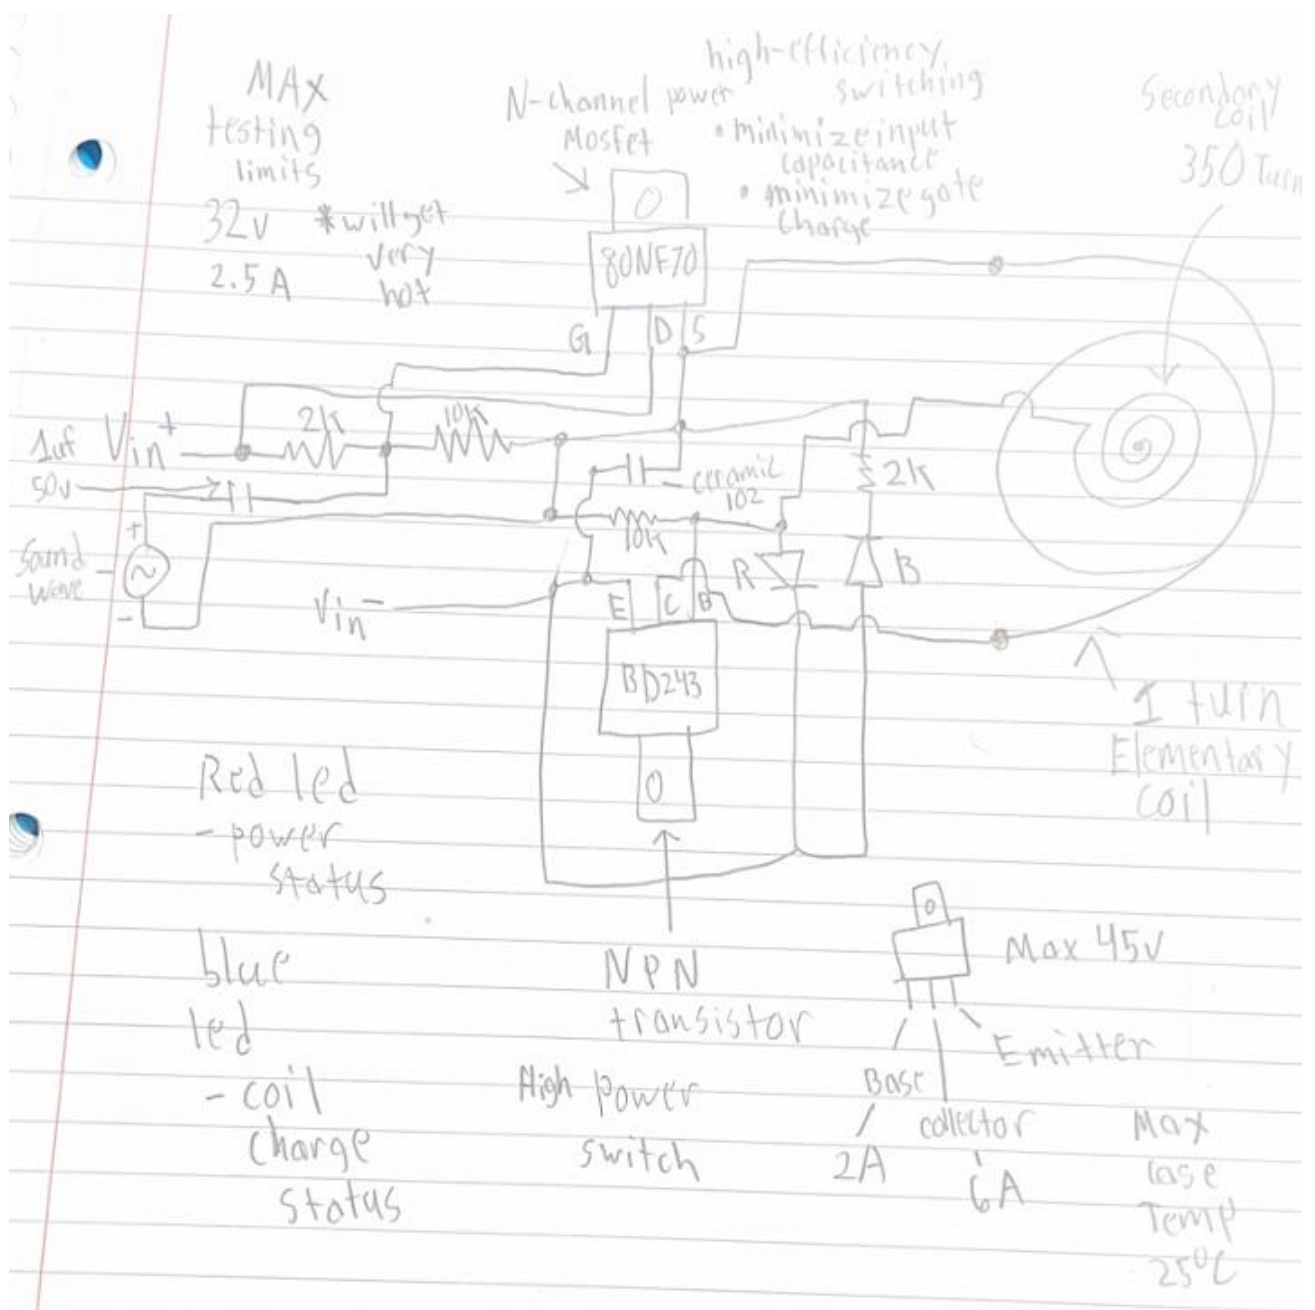 MAX
testing
limits
32v *will get
very
2.5 A hot
N-channel power
Mosfet
high-efficiency
switching
• minimize input
capacitance
• minimize gate
charge
Secondary
coil
350 Turn
80NF70
G D S
1uf Vin+ 2K 10K
50v
ceramic
102
2K
+
10K
Sound
Wave
R B
-
Vin-
E C B
BD243
1 turn
Elementary
coil
Red led
- power
status
blue
led
- coil
charge
status
NPN
transistor
High power
switch
Max 45v
Emitter
Base
collector
2A
6A
Max
case
Temp
25°C